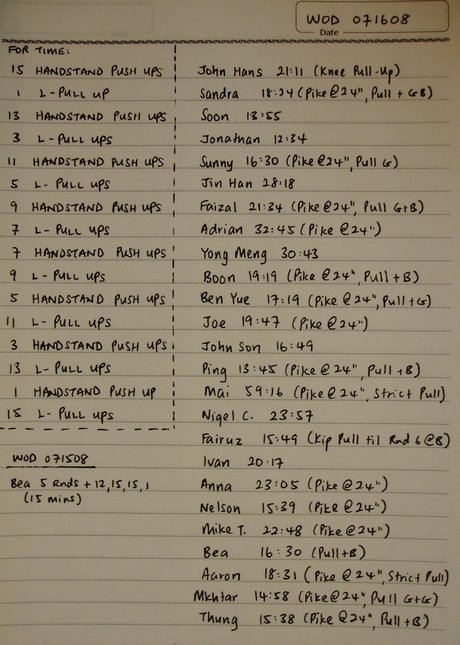 WOD 071608
Date
FOR TIME:
15 HANDSTAND PUSH UPS
1 L-PULL UP
13 HANDSTAND PUSH UPS
3 L-PULL UPS
11 HANDSTAND PUSH UPS
5 L-PULL UPS
9 HANDSTAND PUSH UPS
7 L-PULL UPS
7 HANDSTAND PUSH UPS
9 L-PULL UPS
5 HANDSTAND PUSH UPS
11 L-PULL UPS
3 HANDSTAND PUSH UPS
13 L-PULL UPS
1 HANDSTAND PUSH UP
15 L-PULL UPS
WOD 071508
Bea 5 Rnds + 12,15,15,1
(15 mins)
John Hans 21:11 (Knee Pull-Up)
Sandra 18:24 (Pike @ 24", Pull + GB)
Soon 13:55
Jonathan 12:34
Sunny 16:30 (Pike @ 24", Pull G)
Jin Han 28:18
Faizal 21:34 (Pike @ 24", Pull G+B)
Adrian 32:45 (Pike @ 24")
Yong Meng 30:43
Boon 19:19 (Pike @ 24", Pull + B)
Ben Yue 17:19 (Pike @ 24", Pull + G)
Joe 19:47 (Pike @ 24")
John Son 16:49
Ping 13:45 (Pike @ 24", Pull + B)
Mai 59:16 (Pike @ 24", Strict Pull)
Nigel C. 23:57
Fairuz 15:49 (Kip Pull til Rnd 6 @ B)
Ivan 20:17
Anna 23:05 (Pike @ 24")
Nelson 15:39 (Pike @ 24")
Mike T. 22:48 (Pike @ 24")
Bea 16:30 (Pull + B)
Aaron 18:31 (Pike @ 24", Strict Pull)
Mkhtar 14:58 (Pike @ 24", Pull G+G)
Thung 15:38 (Pike @ 24", Pull + B)